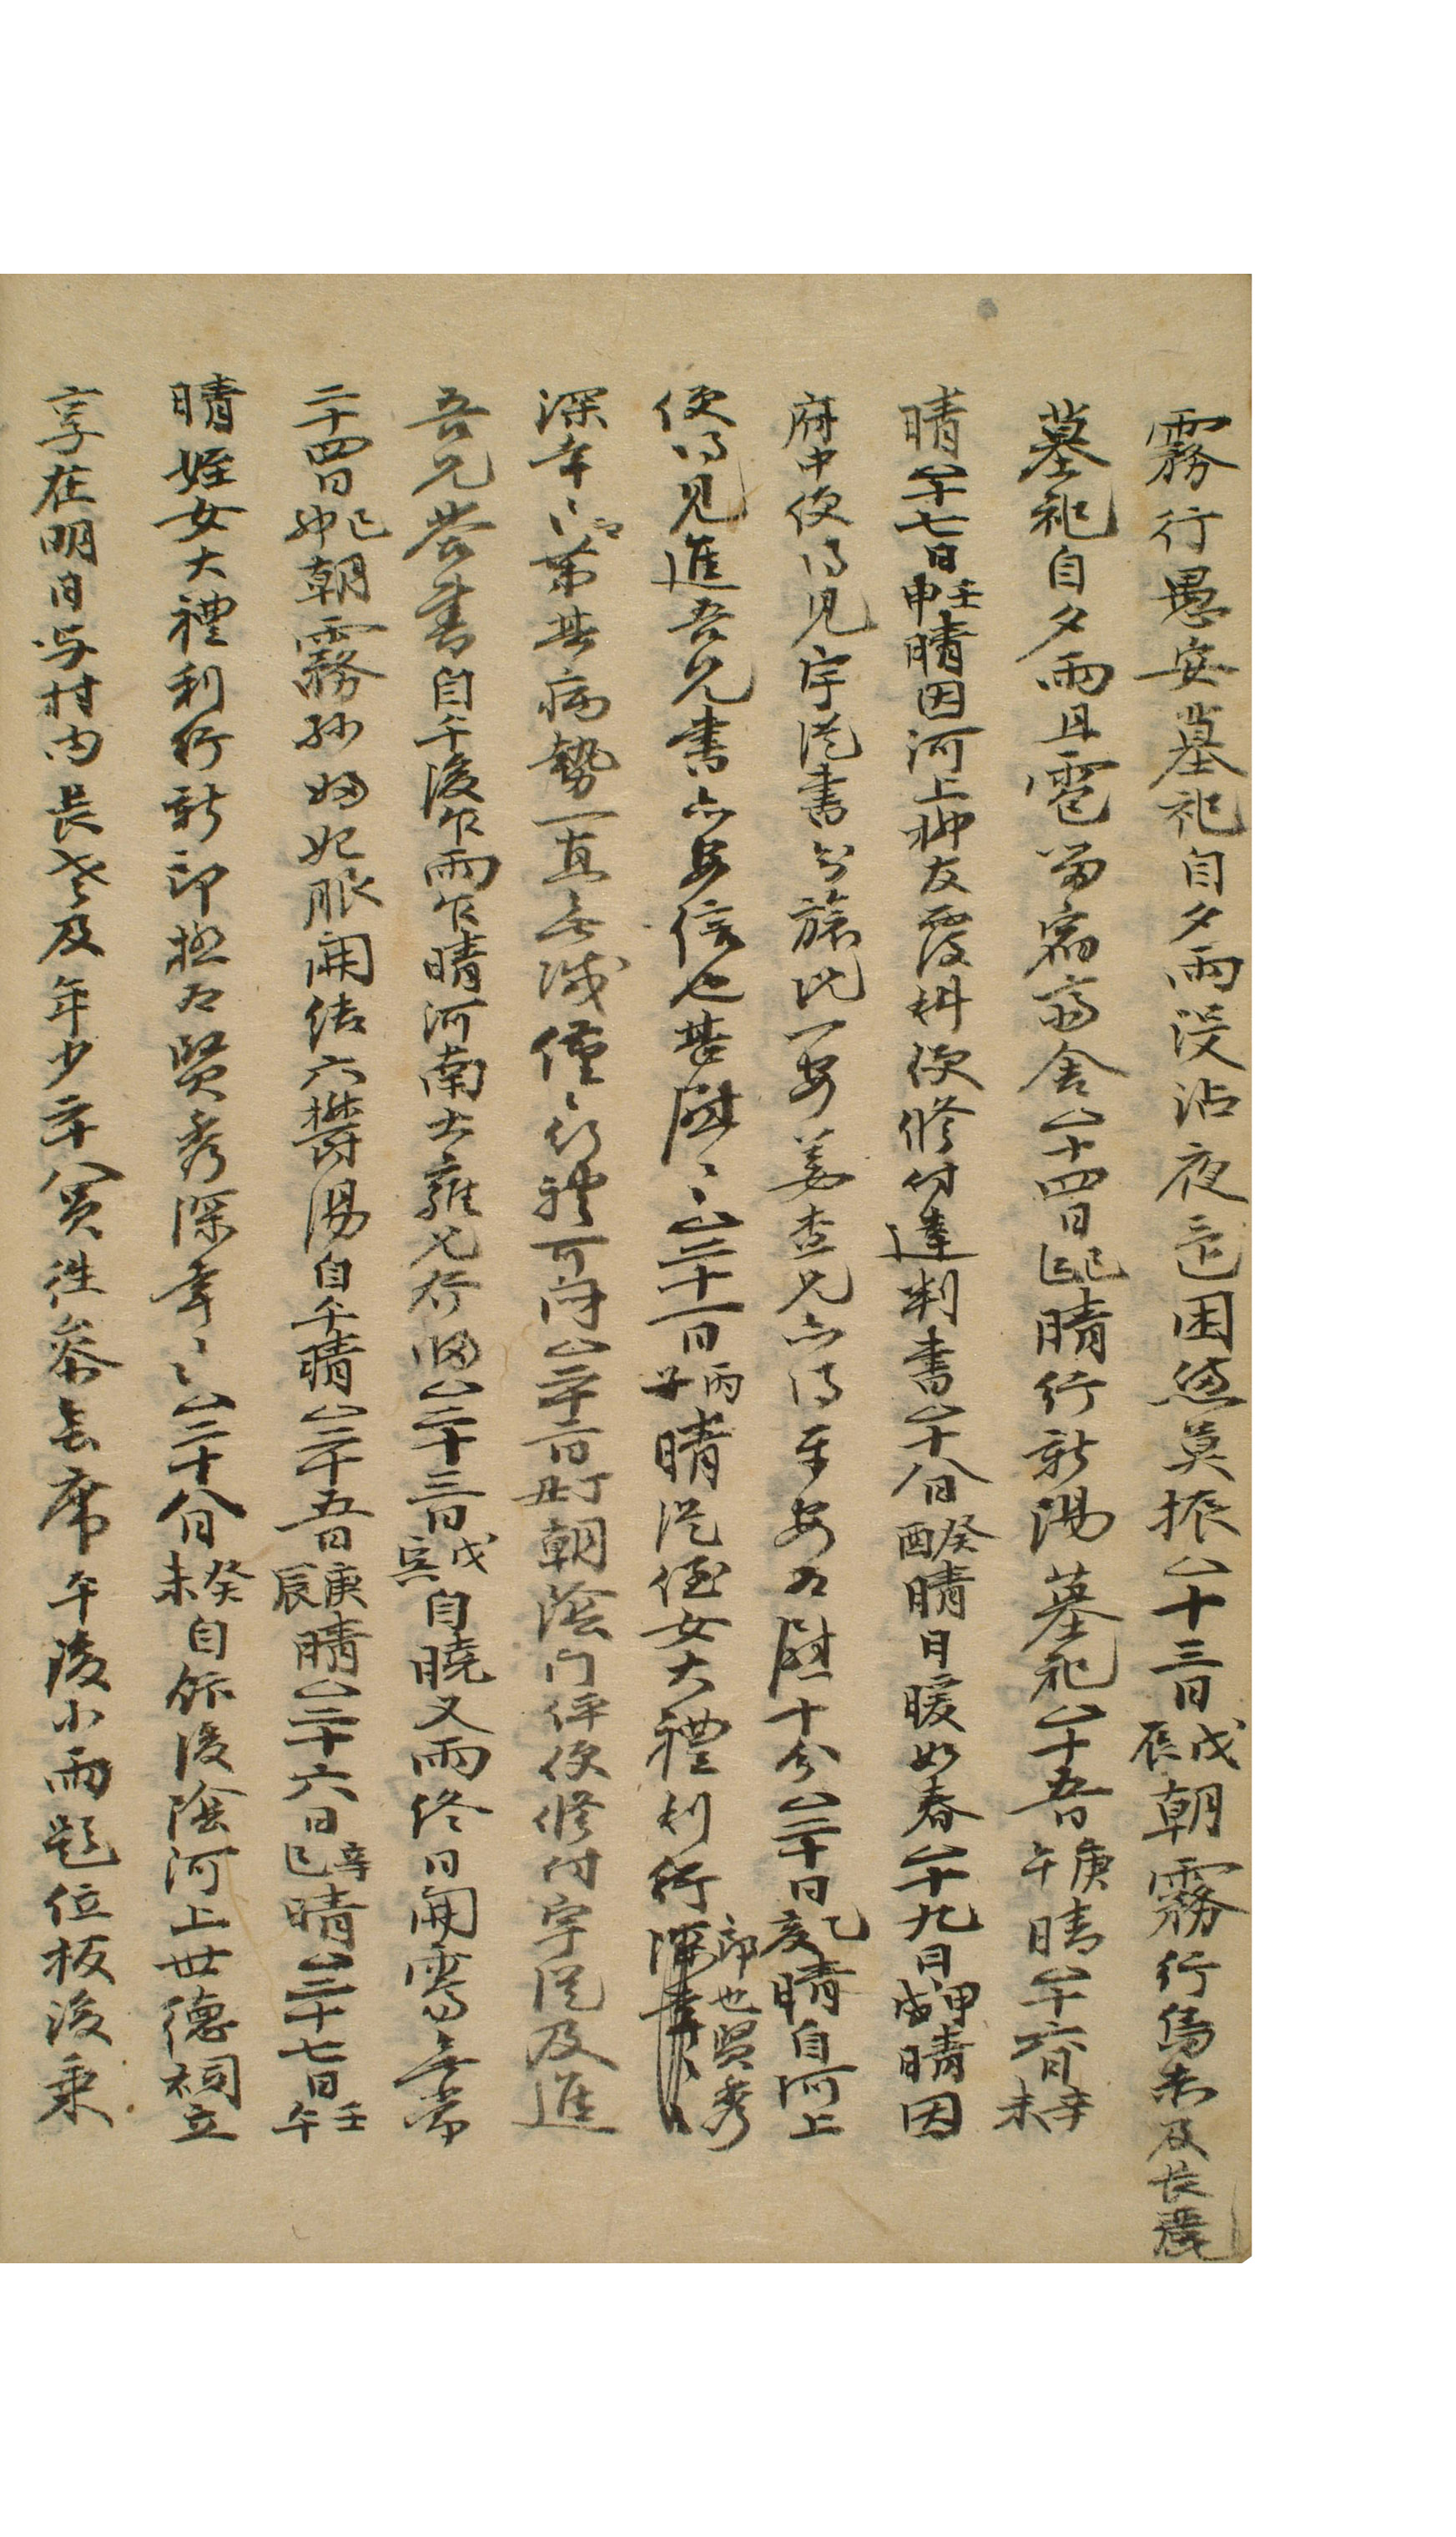 霧行愚安墓祀自夕雨浸沾夜已困憊莫振△十三日戊辰朝霧行馬未及長麓
墓祀自夕雨且雹留宿齋舍△十四日己巳晴行新陽墓祀△十五日庚午晴△十六日辛未
晴△十七日壬申晴因河上神友覆科便修付達判書△十八日癸酉晴日暖如春△十九日甲戌晴因
府中便得見宇從書公旅此一安姜查兄亦得平安為慰十分△二十日乙亥晴自河上
便得見進吾兄書亦安信也甚慰〻△二十一日丙子晴從侄女大禮利行郎也賢秀
深幸〻而第其病勢一直無減僅〻行禮可悶△二十二日丁丑朝陰門便修付宇從及進
吾兄答書自午後乍雨乍晴河南士雍兄行留△二十三日戊寅自曉又雨終日開霽無常
二十四日己卯朝霧孫婦妃眼開結六鬱湯自午晴△二十五日庚辰晴△二十六日辛巳晴△二十七日壬午
晴姪女大禮利行新郎極為賢秀深幸〻△二十八日癸未自飯後陰河上世德祠立
享在明日与村內長老及年少二十八員往參去席午後小雨題位板後乘